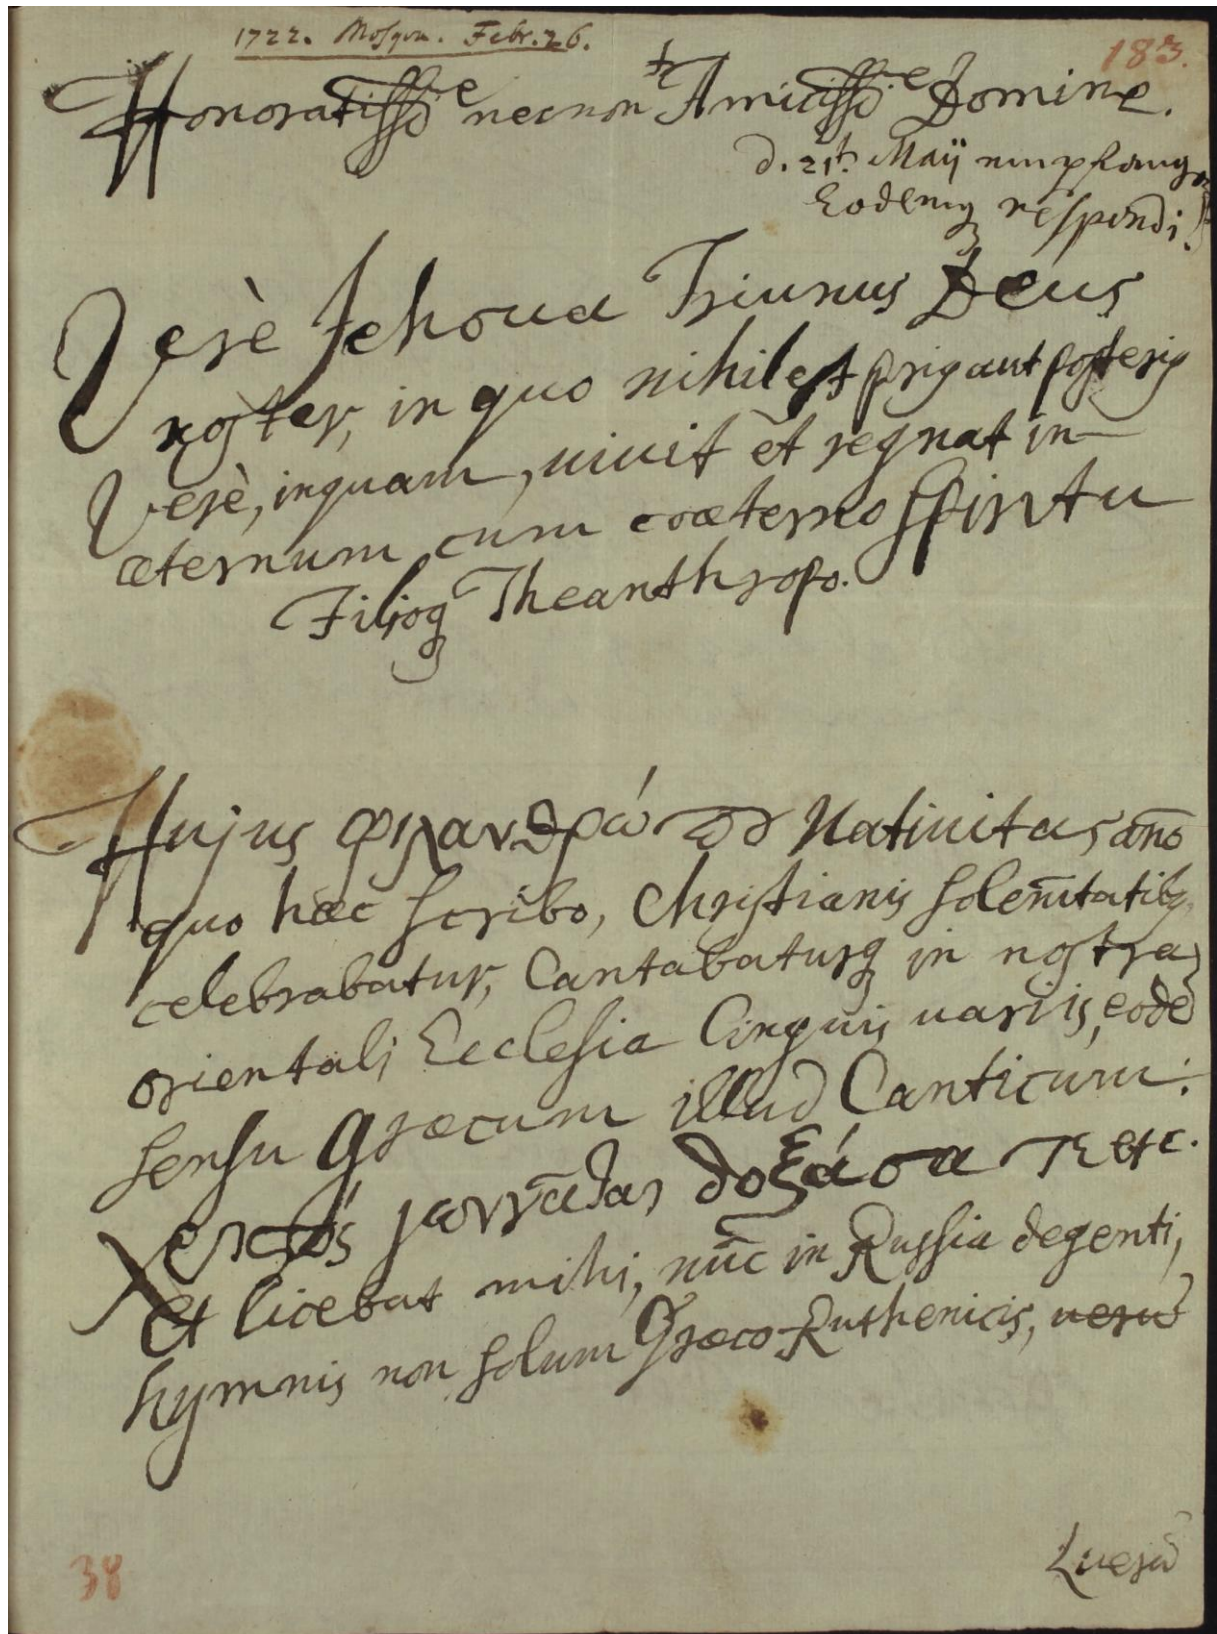 1722. Mosqva. Febr. 26.
183.
Honoratissē necnon Amicissē Domine.
d. 21t. Maij
Eodemq respondi.
Verè Jehova Triunus Deus
noster, in quo nihil est prig aut posterig
Verè, inquam, uiuit et regnat in
æternum cum coæterno Spiritu
Filioq Theanthropo.
Hujus Natiuitas año
quo hæc scribo, Christianis solem̄tatibq
celebrabatur, Cantabaturq in nostra
orientali Ecclesia linguis uariis, eodē
sensu Græcum illud Canticum:
Χριστὸς γεννᾶται δοξάσατε etc.
Et licebat mihi, nūc in Russia degenti,
hymnis non solum Græco-Ruthenicis, uerū
uerū
38